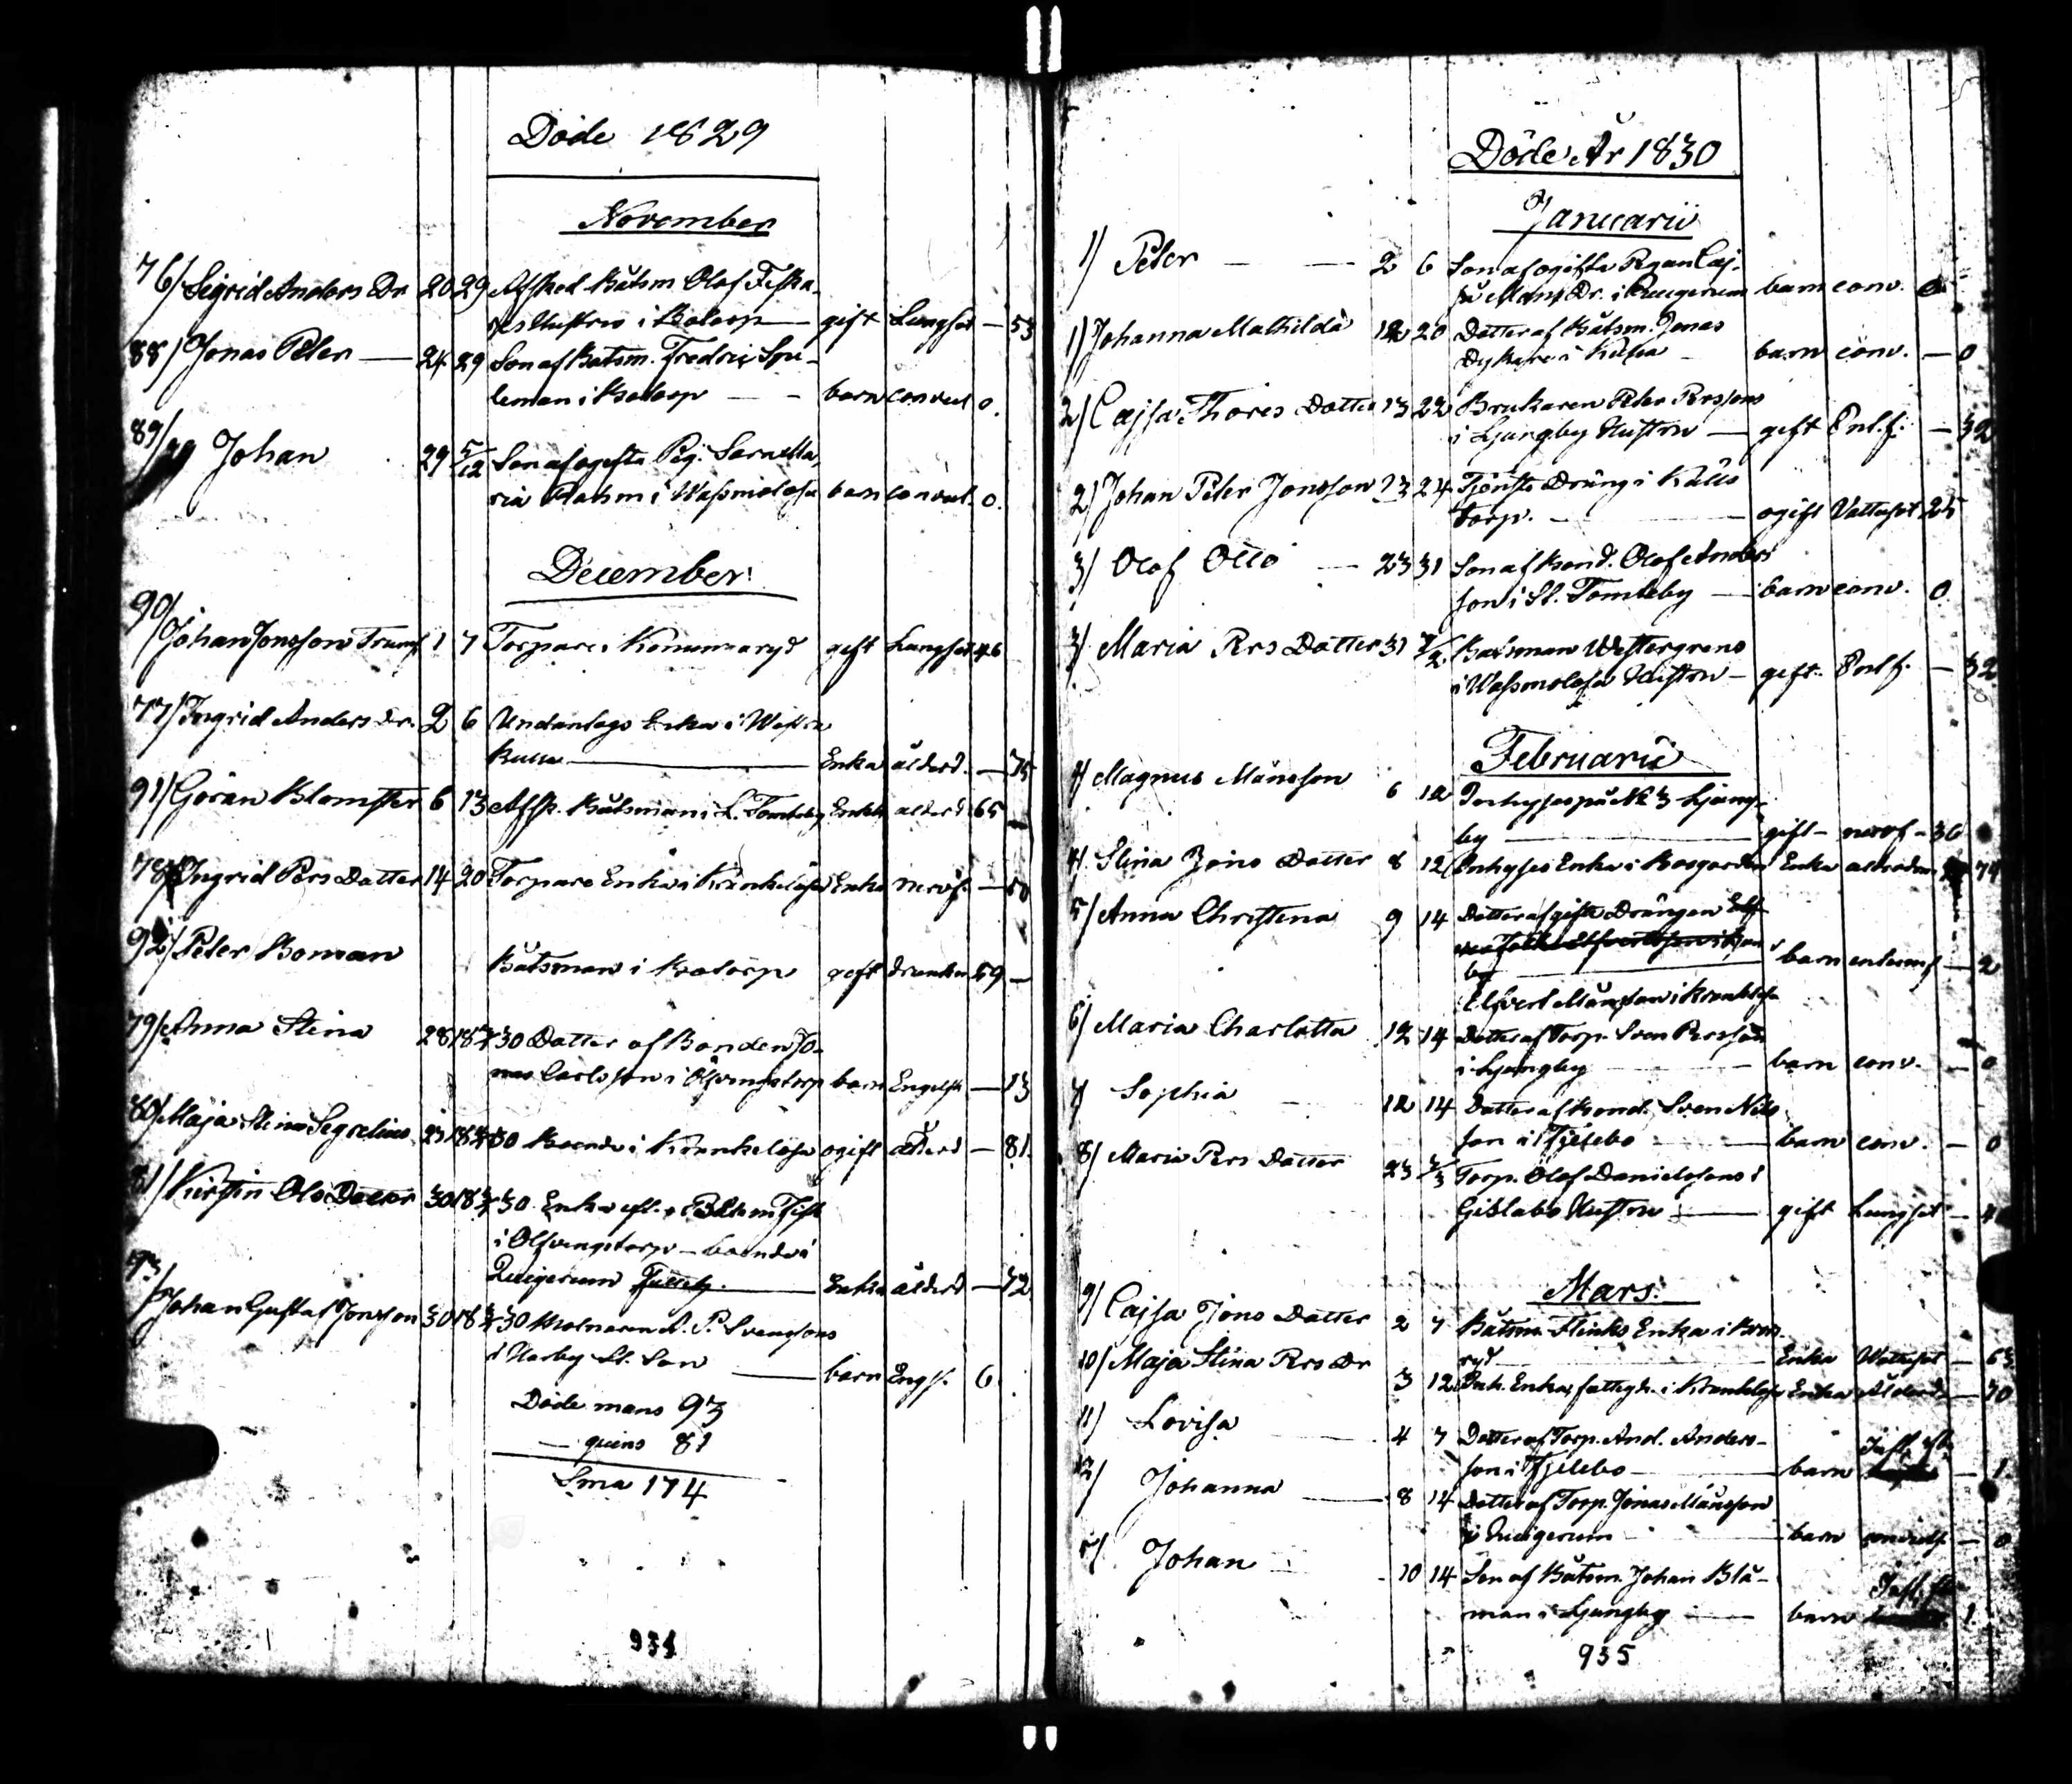 Döde 1829
November
76/ Sigrid Anders Dr 20 29 Afsked Båtsm Olof Fiska-
res Hustru i Botorp — gift Lungsot — 53
88/ Jonas Peter — 24 29 Son af Båtsm. Fredric Spe-
leman i Botorp — — barn convul 0.
89/ Johan 29 5/12 Son af ogifta Pig. Sara Ma-
ria i Wassmolösa barn convul. 0.
December
90/ Johan Jonsson Trumf 1 7 Torpare i gift Lungsot 46
77/ Ingrid Anders Dr. 2 6 Undantags Enka i Westra
Kulla — Enka ålderd. — 75
91/ Göran Blomster 6 13 Afsk. Båtsman i L. Tomteby Enkl. ålderd 65
78/ Ingrid Pers Datter 14 20 Torpare Enka i Kränkelösa Enka nervf. —
92/ Peter Boman Båtsman i Botorp gift drunkn 59 —
79/ Anna Stina 28 30 Datter af Bonden Jo-
nas Carlsson i Ölfvingstorp barn Engelsk — 13
80/ Maja Stina Segrelius 29 30 Boende i Kränkelösa ogift ålderd — 81.
81/ Kerstin Ols Datter 30 30. Enka eft. Båtsm Fisk
i Ölfvingstorp — boende i
Quigerum — Enka ålderd — 72
93/ Johan Gustaf Jonsson 30 30 Molnaren A. P. Svenssons
i Harby St. Son — barn Engs. 6
Döde mans 93
— quins 81
Sma 174
934
Döde År 1830
Januarii
1/ Peter — — 2 6 Son af ogifta Pigan Caj-
sa Måns Dr. i Quigerum barn conv. 0
1/ Johanna Mathilda 12 20 Datter af Båtsm. Jonas
Dykare i Kulla — barn conv. — 0
2/ Cajsa Thores Datter 13 22 Brukaren Peter Perssons
i Ljungby Hustru — gift — 32
2/ Johan Peter Jonsson 23 24 Tjenste Dräng i Källs
torp. — ogift Vattusot 25
3/ Olof Otto — 23 31 Son af Bond. Olof Anders
son i St. Tomteby — barn conv. 0
3/ Maria Prs Datter 31 7/2 Båtsman Westergrens
i Wassmolösa Hustru — gift. — 32
Februarii
4/ Magnus Månsson 6 12 Inhyses på No 3 Ljung-
by — gift — nervf — 36
4/ Stina Jöns Datter 8 12 Inhyses Enka i Bosgården Enka alderdom 74
5/ Anna Christina 9 14 Datter af gifte Drängen
by — barn — 2
Elfvert Månsson i Kränkelösa
6/ Maria Charlotta 12 14 Datter af Torp. Sven Persson
i Ljungby — barn conv. — 0
7/ Sophia — 12 14 Datter af Bond. Sven Nils
son i Tjelebo — barn conv. — 0
8/ Maria Pers Datter 23 Torp. Olof Danielssons i
Gislabo Hustru — gift Lungsot —
Mars.
9/ Cajsa Jöns Datter 2 7 Båtsm. Flinks Enka i
ryd — Enka Wattusot — 63
10/ Maja Stina Prs Dr 3 12 Inh. Enka, fattigh. i Kränkelösa Enka Ålderd. — 70
11/ Lovisa — 4 7 Datter af Torp. And. Anders-
son i Tjelebo — barn — 1
12/ Johanna — 8 14 Datter af Torp. Jonas Månsson
i Quigerum barn convuls. — 0
5/ Johan — 10 14 Son af Båtsm. Johan Blå-
man i Ljungby — barn 1.
935